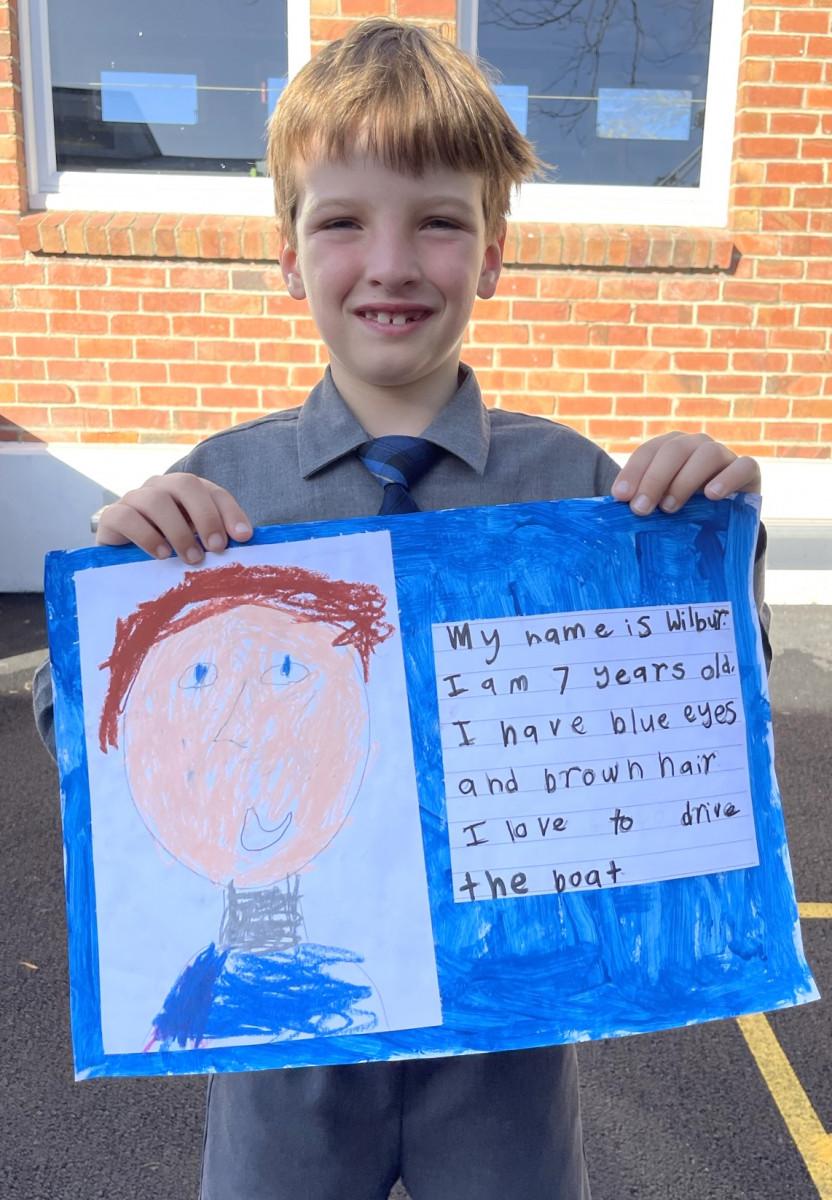 My name is Wilbur.
I am 7 years old.
I have blue eyes
and brown hair
I love to drive
the boat